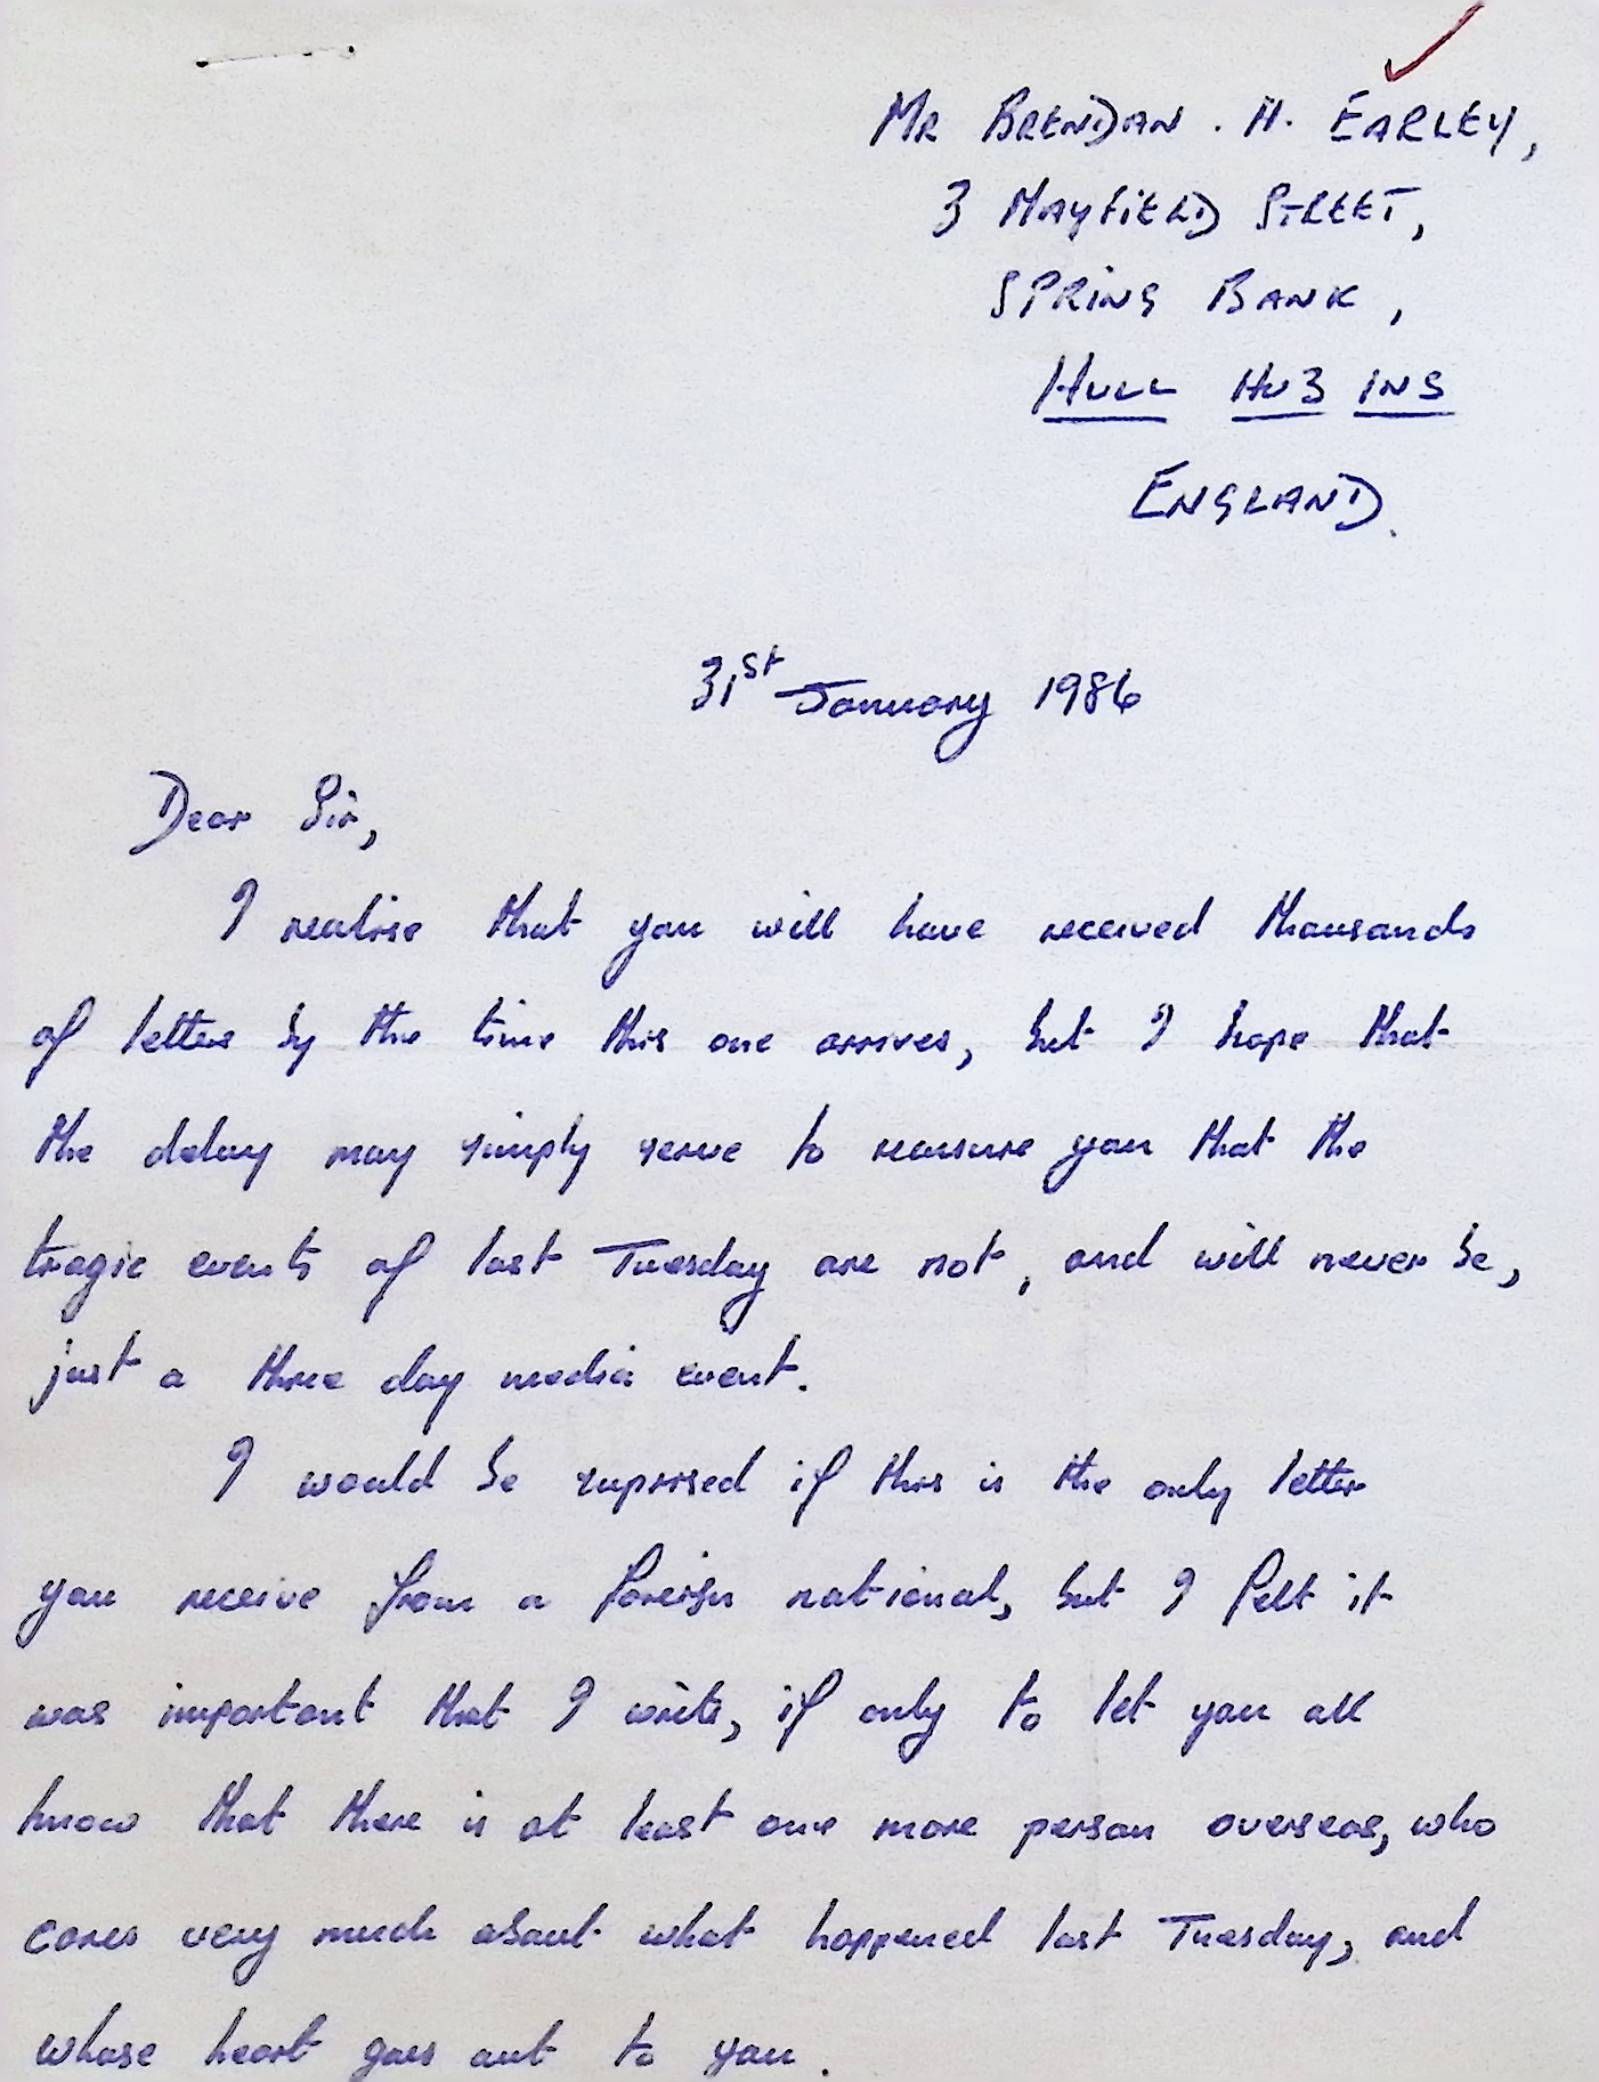 Mr BRENDAN . H. EARLEY,
3 MAYFIELD STREET,
SPRING BANK,
HULL HU3 1NS
ENGLAND.
31st January 1986
Dear Sir,
I realise that you will have received thousands
of letters by the time this one arrives, but I hope that
the delay may simply serve to reassure you that the
tragic events of last Tuesday are not, and will never be,
just a three day media event.
I would be suprised if this is the only letter
you receive from a foreign national, but I felt it
was important that I write, if only to let you all
know that there is at least one more person overseas, who
cares very much about what happened last Tuesday, and
whose heart goes out to you.